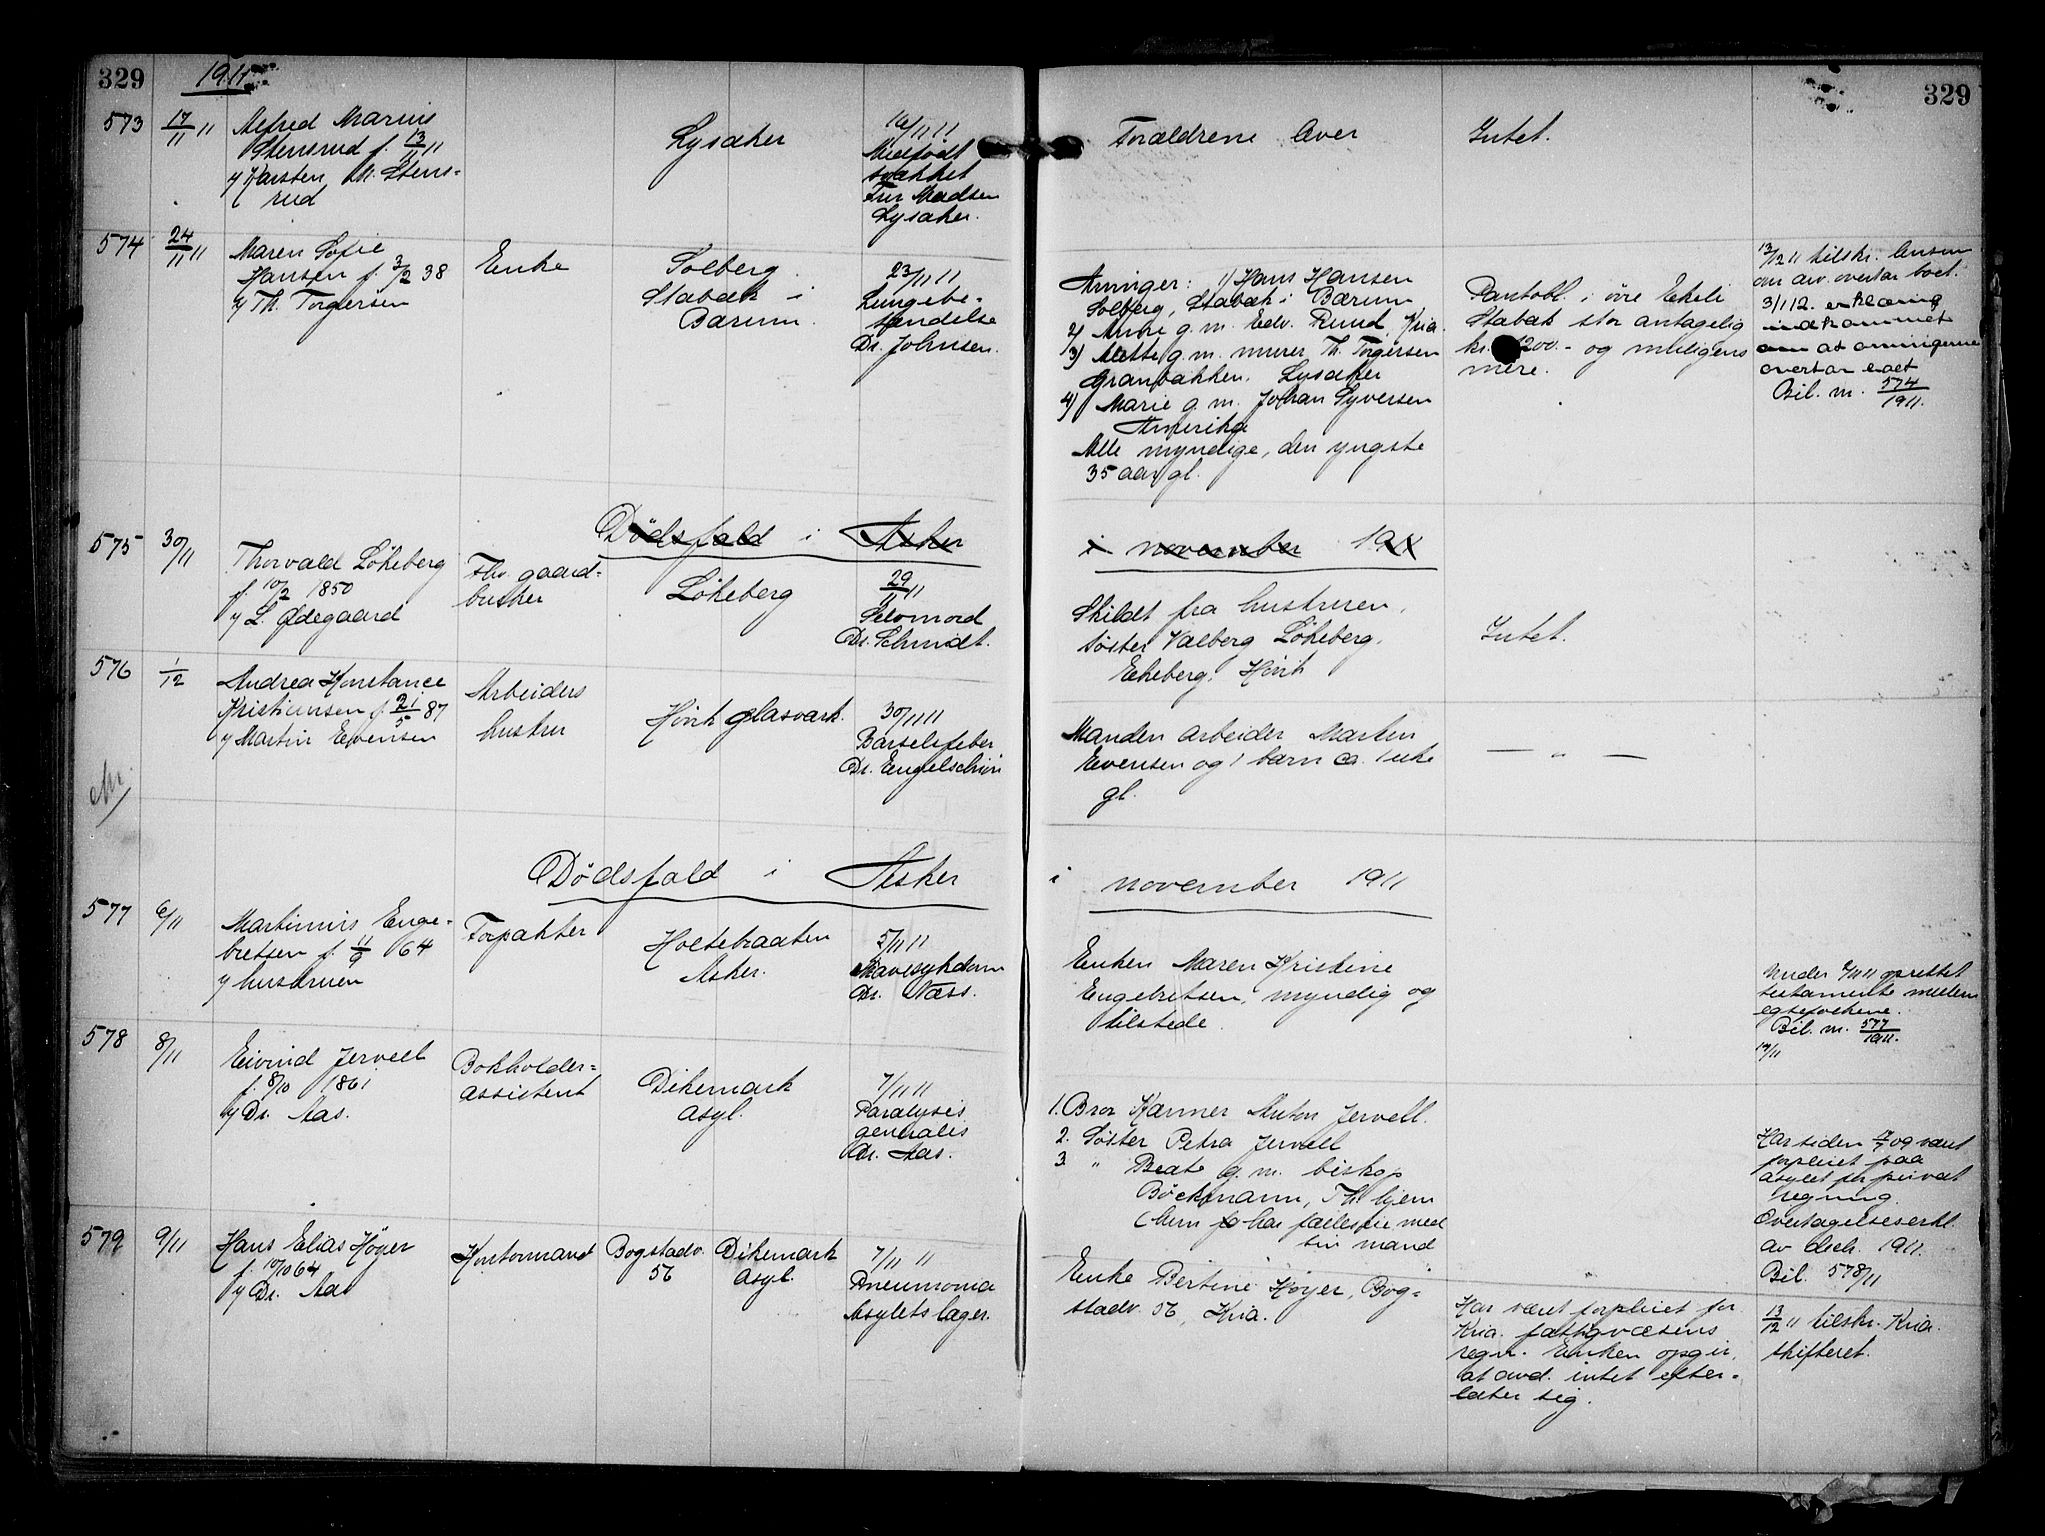 329
1911
329
573
17/11 11
Alfred Marius
Stensrud f. 13/11 11
v/ Karsten Th. Stens-
rud
Lysaker
16/11 11
Medfödt
svakhet
Fru Madsen
Lysaker.
Forældrene lever
Intet.
574
24/11 11
Maren Sofie
Hansen f. 3/2 38
v/ Th. Torgersen
Enke
Solberg
Stabæk i
Bærum.
23/11 11
Lungebe-
tændelse
Dr. Johnsen.
Arvinger: 1) Hans Hansen
Solberg, Stabæk i Bærum
2) Anne g. m. Edv. Ruud, Kria.
3) Mette g. m. murer Th. Torgersen
Granbakken, Lysaker
4) Marie g. m. Johan Syversen
Amerika
Alle myndige, den yngste
35 aar gl.
Pantobl. i övre Ekeli
Stabæk stor antagelig
kr. 1200.- og muligens
mere.
13/12 11 tilskr. lensm
om arv. overtar boet.
3/1 12. erklæring
indkommet
om at arvingerne
overtar boet
Bil. m. 574/1911.
Dödsfald i Asker
i november 1911
575
30/11
Thorvald Lökeberg
f. 10/2 1850
v/ L. Ödegaard
Fhv. gaard-
bruker
Lökeberg
29/11 11
Selvmord
Dr. Schmidt.
Skildt fra hustruen,
söster Valberg Lökeberg,
Ekeberg, Hövik
Intet.
576
1/12
Andrea Konstance
Kristiansen f. 21/5 87
v/ Martin Evensen
Arbeiders
hustru
Hövik glasværk.
30/11 11
Barselsfeber
Dr. Engelschiön
Manden arbeider Martin
Evensen og 1 barn ca. 1 uke
gl.
— " —
Dödsfald i Asker
i november 1911
577
6/11
Martinius Enge-
bretsen f. 11/9 64
v/ hustruen
Forpakter
Holtebraaten
Asker.
5/11 11
Mavesykdom
Dr. Næss.
Enken Maren Kristine
Engebretsen, myndig og
tilstede.
Under 6/11 11 oprettet
testamente mellem
egtefolkene.
Bil. m. 577/1911.
578
8/11
Eivind Jervell
f. 8/10 1861
v/ Dr. Aas.
Bokholder-
assistent
Dikemark
asyl.
7/11 11
Paralysis
generalis
Dr. Aas.
1. Bror Kæmner Anton Jervell.
2. Söster Petra Jervell
3 " Beate g. m. biskop
Böckmann, Th.hjem
(hun har fælleseie med
sin mand
Har siden og været
forpleiet paa
asylet for privat
regning.
Overtagelseserkl.
av decb. 1911.
Bil. 578/11
579
9/11
Hans Elias Höyer
f. 10/10 64
v/ Dr. Aas
Kontormand
Bogstadv.
56
Dikemark
Asyl.
7/11 11
Pneumonia
Asylets læge.
Enke Bertine Höyer, Bog-
stadv. 56, Kria.
Har været forpleiet for
Kria. fattigvæsens
regn. Enken opgir,
at avd. intet efter-
later sig.
13/12 11 tilskr. Kria.
skifteret.